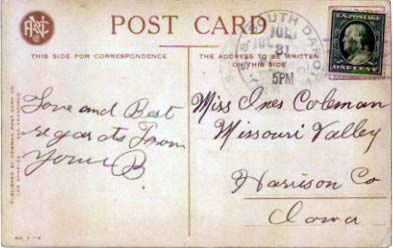 POST CARD
THIS SIDE FOR CORRESPONDENCE
THE ADDRESS TO BE WRITTEN
THIS SIDE
SOUTH DAKOTA
JUL
31
5PM
U.S. POSTAGE
ONE CENT
Love and Best
regards From
Your B.
Miss Ines Coleman
Missouri Valley
Harrison Co
Iowa
PUBLISHED BY NEWMAN POST CARD CO.
LOS ANGELES SAN FRANCISCO